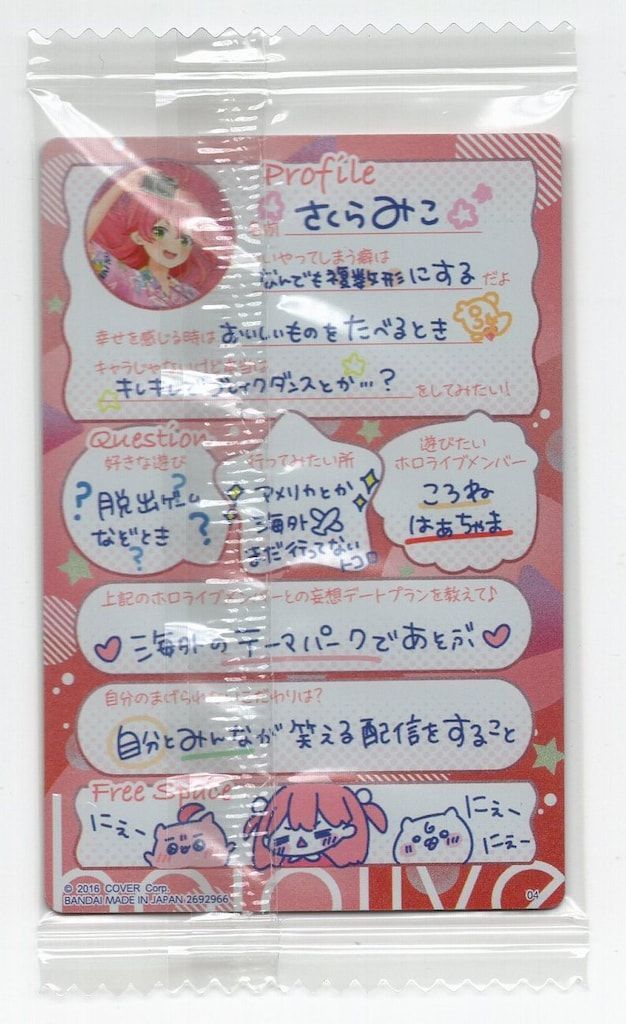 Profile
さくらみこ
いやってしまう癖は
なんでも複数形にするだよ
幸せを感じる時はおいしいものをたべるとき
キャラじゃないけど本当は
キレキレでブレイクダンスとか…?をしてみたい!
Question
好きな遊び
脱出ゲーム
などとき
行ってみたい所
アメリカとか
海外
まだ行ってない
トコ
遊びたい
ホロライブメンバー
ころね
はあちゃま
上記のホロライブメンバーとの妄想デートプランを教えて♪
海外のテーマパークであそぶ
自分のまげられないこだわりは?
自分とみんなが笑える配信をすること
Free Space
にぇー
にぇー
にぇー
hololive
© 2016 COVER Corp.
BANDAI MADE IN JAPAN 2692966
04